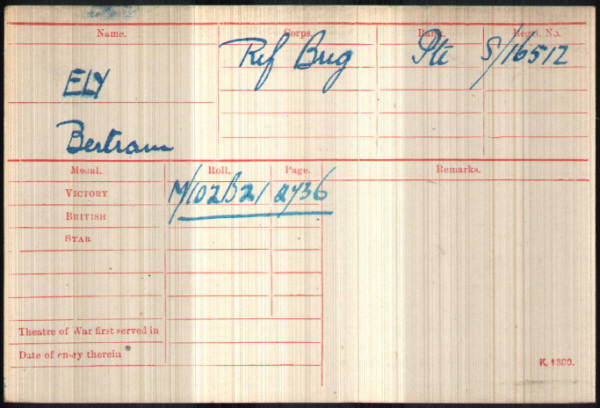 Name. Corps. Rank. Regtl. No.
Rif Brig Pte S/16512
ELY
Bertram
Medal. Roll. Page. Remarks.
VICTORY M/102B21 2736
BRITISH
STAR
Theatre of War first served in
Date of entry therein
K. 1380.